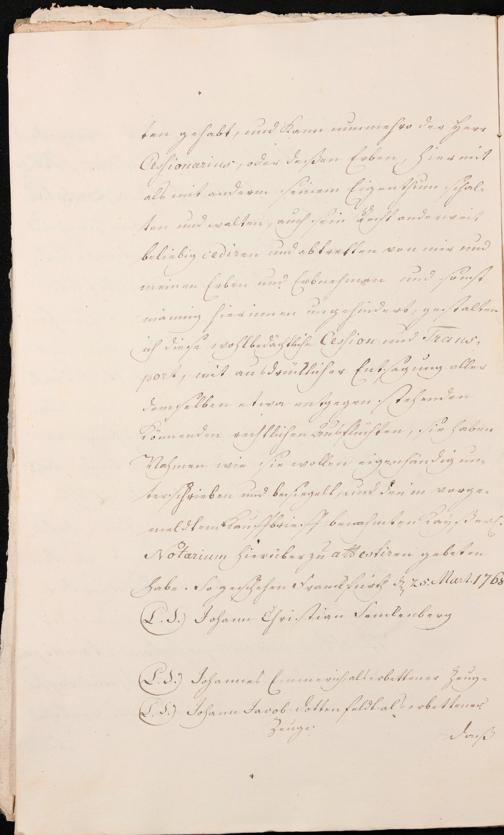 ten gehabt, und kann nunmehro der Herr
Cessionarius, oder deßen Erben, hiermit
als mit anderm seinem Eigenthum schal-
ten und walten, auch sein Recht anderweit
beliebig cediren und abtretten von mir und
meinen Erben und Erbnehmern und sonst
männig hierinnen ungehindert, gestalten
ich diese wohlbedächtliche Cession und Trans-
port, mit ausdrücklicher Entsagung aller
demselben etwa entgegen stehenden
könnenden rechtlichen Ausflüchten, sie haben
Nahmen wie sie wollen eigenhändig un-
terschrieben und besiegelt, und den in vorge-
meldtem Kauffbrieff benahmten Kayßerl.
Notarium hierüber zu attestiren gebeten
habe. So geschehen Franckfurth 25. Mart. 1768
(L.S.) Johann Christian Senckenberg
(L.S.) Johannes Emmerich als erbettener Zeuge
(L.S.) Johann Jacob Dottenfeldt als erbettener
Zeuge
Daß